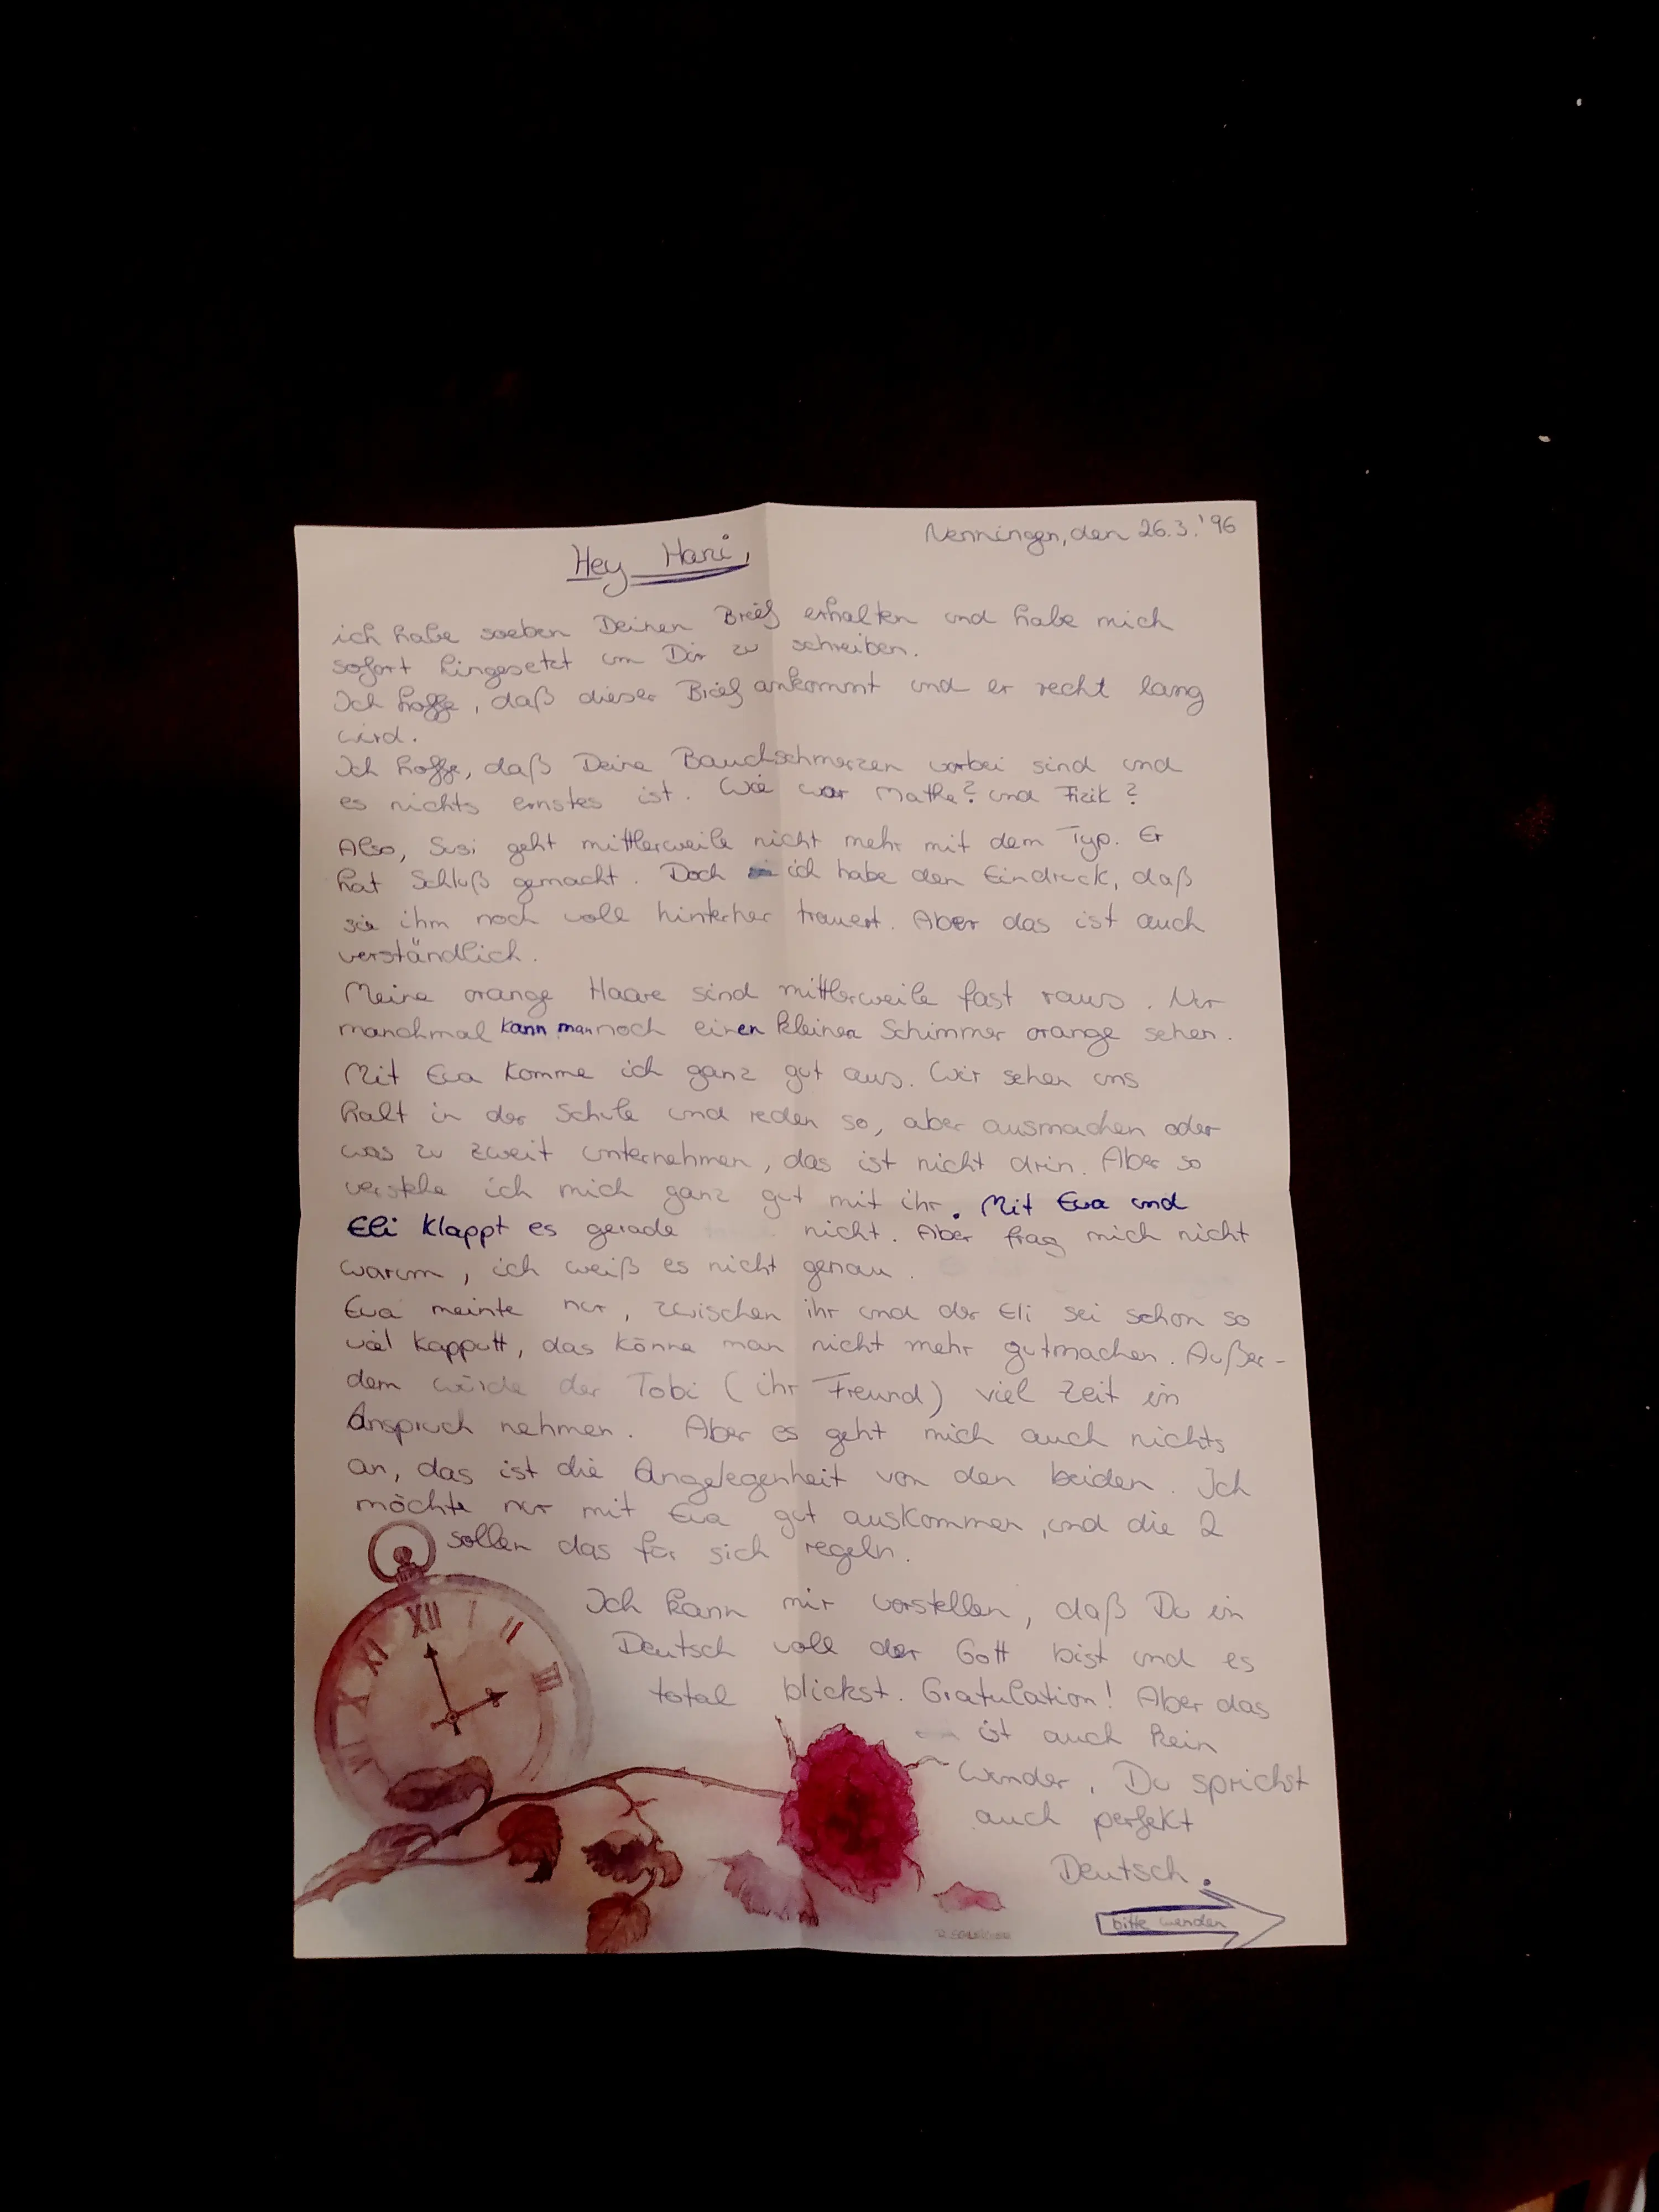 Nenningen, den 26.3.'96
Hey Hani,
ich habe soeben Deinen Brief erhalten und habe mich
sofort hingesetzt um Dir zu schreiben.
Ich hoffe, daß dieser Brief ankommt und er recht lang
wird.
Ich hoffe, daß Deine Bauchschmerzen vorbei sind und
es nichts ernstes ist. Wie war Mathe? und Fizik?
Also, Susi geht mittlerweile nicht mehr mit dem Typ. Er
hat Schluß gemacht. Doch ich habe den Eindruck, daß
sie ihm noch voll hinterher trauert. Aber das ist auch
verständlich.
Meine orange Haare sind mittlerweile fast raus. Nur
manchmal kann man noch einen kleinen Schimmer orange sehen.
Mit Eva komme ich ganz gut aus. Wir sehen uns
halt in der Schule und reden so, aber ausmachen oder
was zu zweit unternehmen, das ist nicht drin. Aber so
verstehe ich mich ganz gut mit ihr. Mit Eva und
Eli klappt es gerade nicht. Aber frag mich nicht
warum, ich weiß es nicht genau.
Eva meinte nur, zwischen ihr und der Eli sei schon so
viel kapputt, das könne man nicht mehr gutmachen. Außer-
dem würde der Tobi (ihr Freund) viel Zeit in
Anspruch nehmen. Aber es geht mich auch nichts
an, das ist die Angelegenheit von den beiden. Ich
möchte nur mit Eva gut auskommen, und die 2
sollen das für sich regeln.
Ich kann mir vorstellen, daß Du in
Deutsch voll der Gott bist und es
total blickst. Gratulation! Aber das
ist auch kein
Wunder, Du sprichst
auch perfekt
Deutsch.
bitte wenden
XII I II III XI X